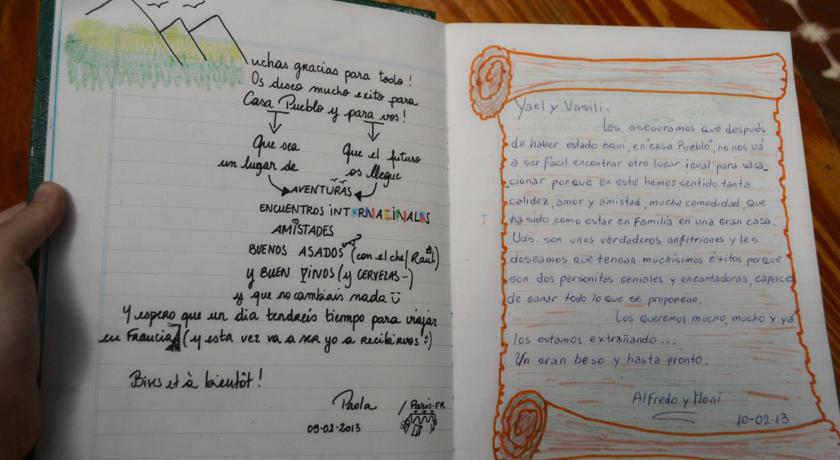 uchas gracias para todo!
Os deseo mucho exito para
Casa Pueblo y para vos!
Que sea
un lugar de
Que el futuro
os llegue
AVENTURAS
ENCUENTROS INTERNACIONALES
AMISTADES
BUENOS ASADOS (con el chef Raúl)
Y BUEN VINOS (y CERVEZAS -)
y que no cambiais nada
Y espero que un dia tendreis tiempo para viajar
en Francia (y esta vez va a ser yo a recibirvos :)
Bises et à bientôt!
Paola / Paris-FR
09-02-2013
Yael y Vasili:
Les aseguramos que después
de haber estado aquí, en "casa Pueblo", no nos va
a ser fácil encontrar otro lugar igual para vaca_
_cionar porque en este hemos sentido tanta
calidez, amor y amistad, mucha comodidad, que
ha sido como estar en familia en una gran casa.
Uds. son unos verdaderos anfitriones y les
deseamos que tengan muchísimos éxitos porque
son dos personitas geniales y encantadoras, capaces
de ganar todo lo que se propongan.
Los queremos mucho, mucho y ya
los estamos extrañando...
Un gran beso y hasta pronto.
Alfredo y Moni
10-02-13